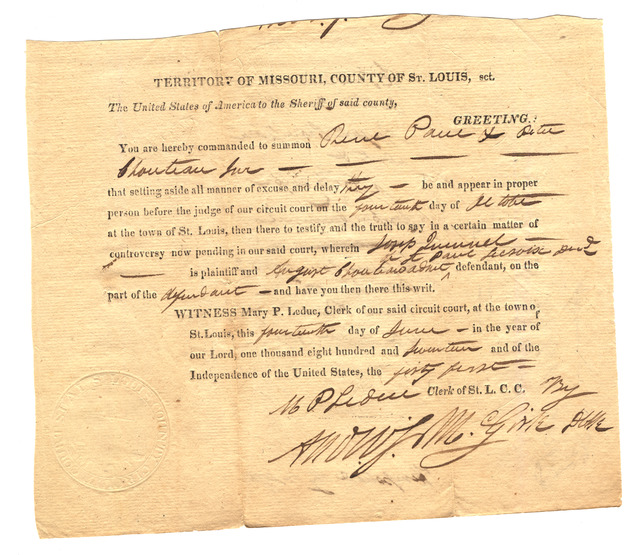 TERRITORY OF MISSOURI, COUNTY OF ST. LOUIS, sct.
The United States of America to the Sheriff of said county,
GREETING:
You are hereby commanded to summon Rene Paul & Peter
Chouteau Jur
that setting aside all manner of excuse and delay they be and appear in proper
person before the judge of our circuit court on the fourteenth day of October
at the town of St. Louis, then there to testify and the truth to say in a certain matter of
controversy now pending in our said court, wherein
is plaintiff and August Chouteau defendant, on the
part of the defendant and have you then there this writ.
WITNESS Mary P. Leduc, Clerk of our said circuit court, at the town of
St. Louis, this fourteenth day of June in the year of
our Lord, one thousand eight hundred and seventeen and of the
Independence of the United States, the forty first
M P Leduc Clerk of St. L. C. C. By
Andw J. McGirk DClk